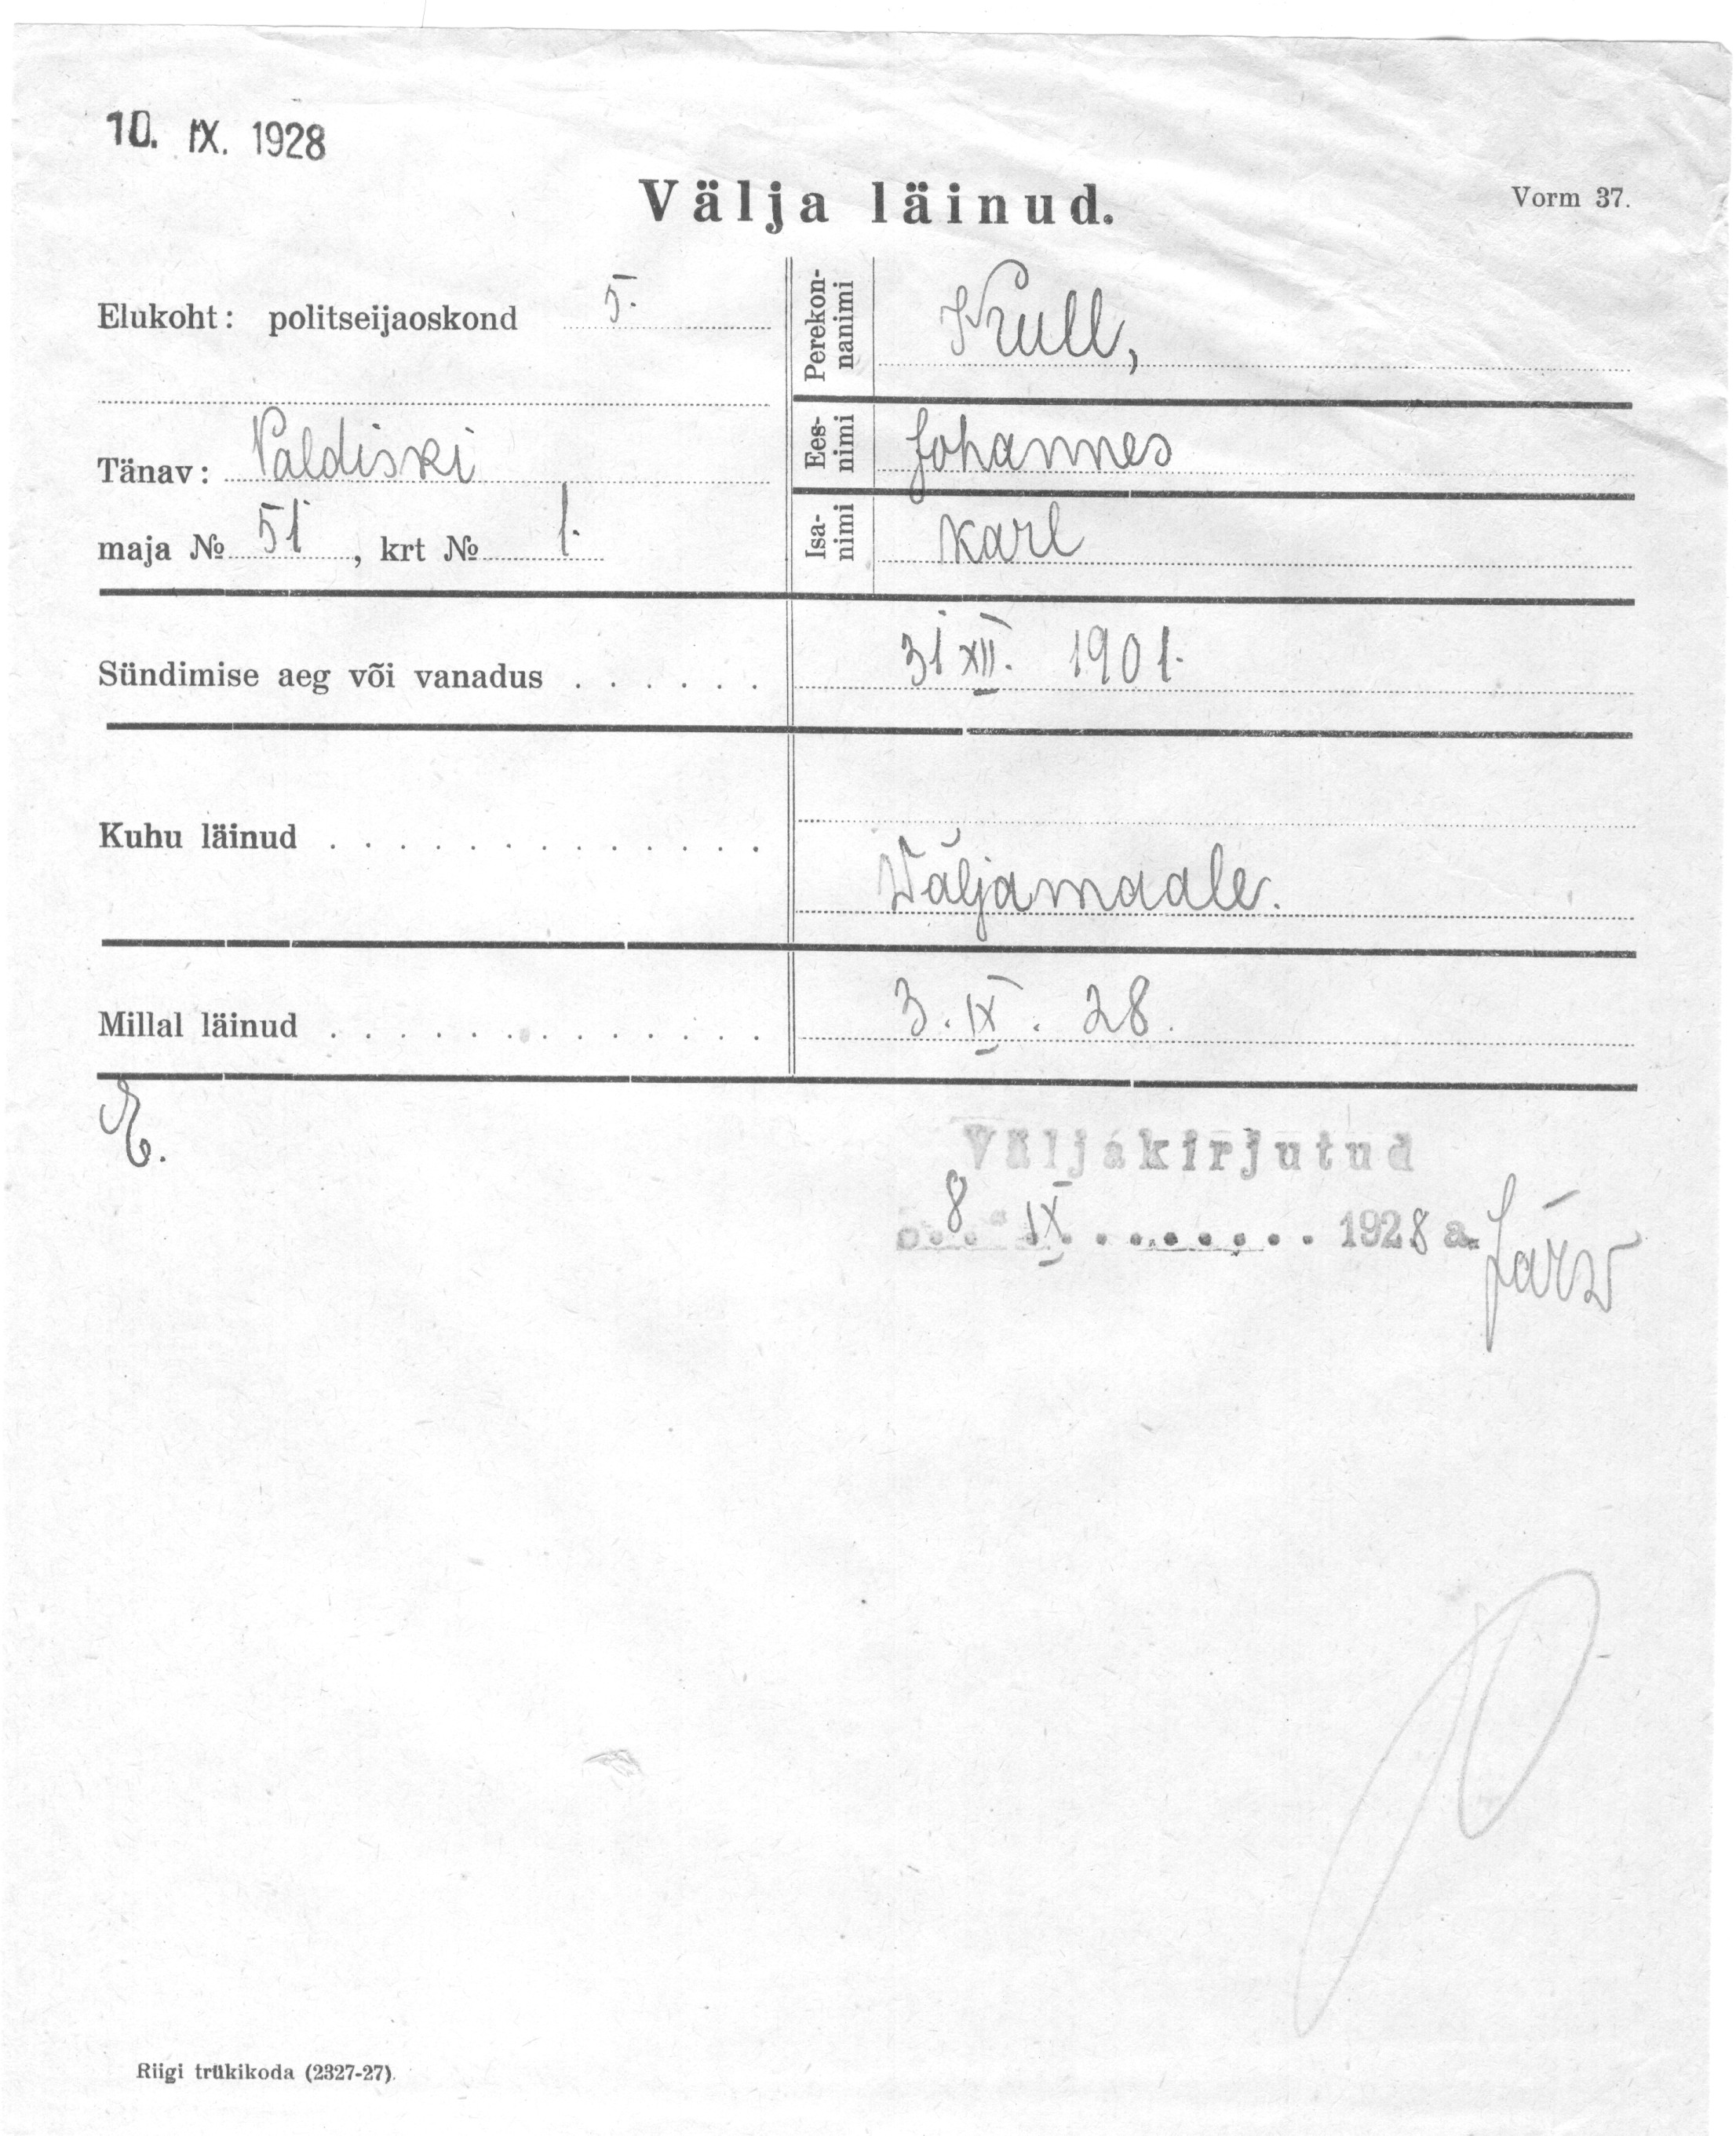 10. IX. 1928
Välja läinud.
Vorm 37.
Elukoht: politseijaoskond 5.
Tänav: Paldiski
maja № 51, krt № 1.
Perekon-
nanimi
Krull,
Ees-
nimi
Johannes
Isa-
nimi
Karl
Sündimise aeg või vanadus . . . . . . 31 XII. 1901.
Kuhu läinud . . . . . . . . . . . . . Wäljamaale.
Millal läinud . . . . . . . . . . . . . 3. IX. 28.
Väljakirjutud
8 IX 1928 a. Järw
Riigi trükikoda (2327-27).